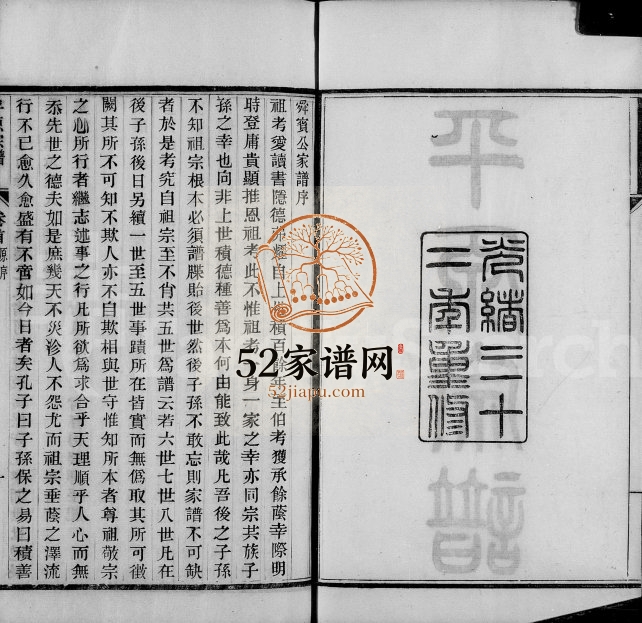 光緒二十
二年重修
舜賓公家譜序
祖考愛讀書隱德弗耀自上 積百 年生伯考獲承餘蔭幸際明
時登庸貴顯推恩祖考此不惟祖考 身一家之幸亦同宗共族子
孫之幸也向非上世積德種善爲本何由能致此哉凡吾後之子孫
不知祖宗根本必須譜牒貽後世然後子孫不敢忘則家譜不可缺
者於是考究自祖宗至不肖共五世爲譜云若六世七世八世凡在
後子孫後日另續一世至五世事蹟所在皆實而無僞取其所可徵
闕其所不可知不欺人亦不自欺相與世守惟知所本者尊祖敬宗
之心所行者繼志述事之行凡所欲爲求合乎天理順乎人心而無
忝先世之德夫如是庶幾天不災沴人不怨尤而祖宗垂蔭之澤流
行不已愈久愈盛有不啻如今日者矣孔子曰子孫保之易曰積善
卷首
52家谱网
52jiapu.com